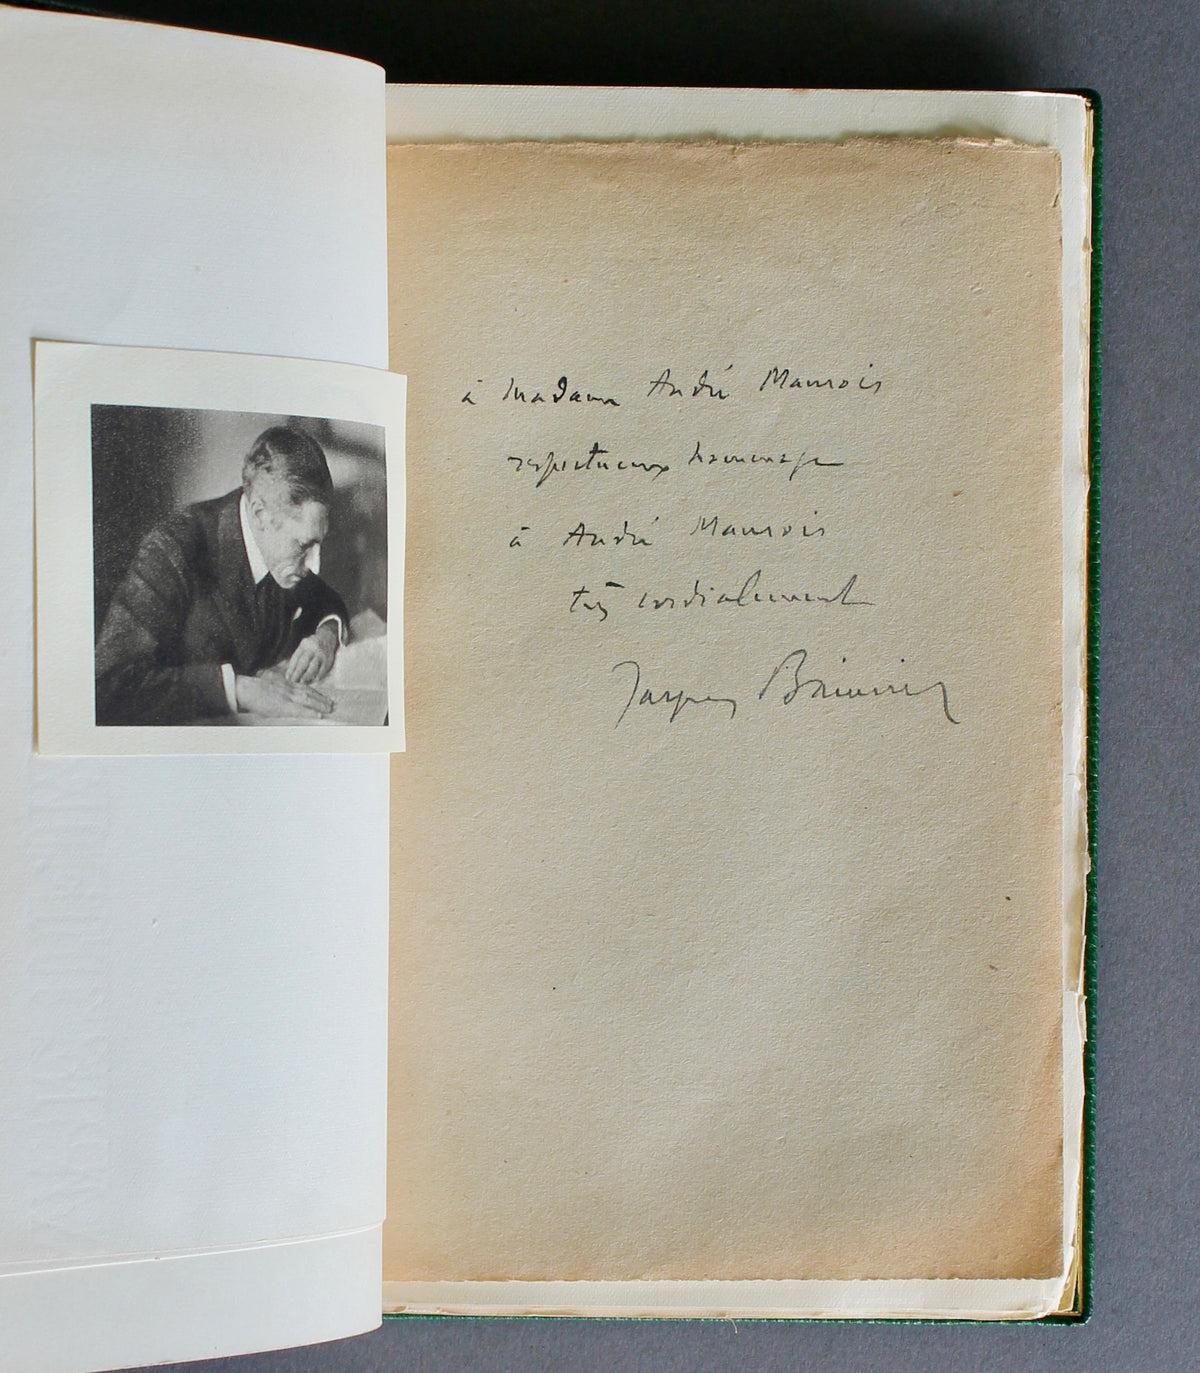 à Madame André Maurois
respectueux hommage
à André Maurois
très cordialement
Jacques Bainville